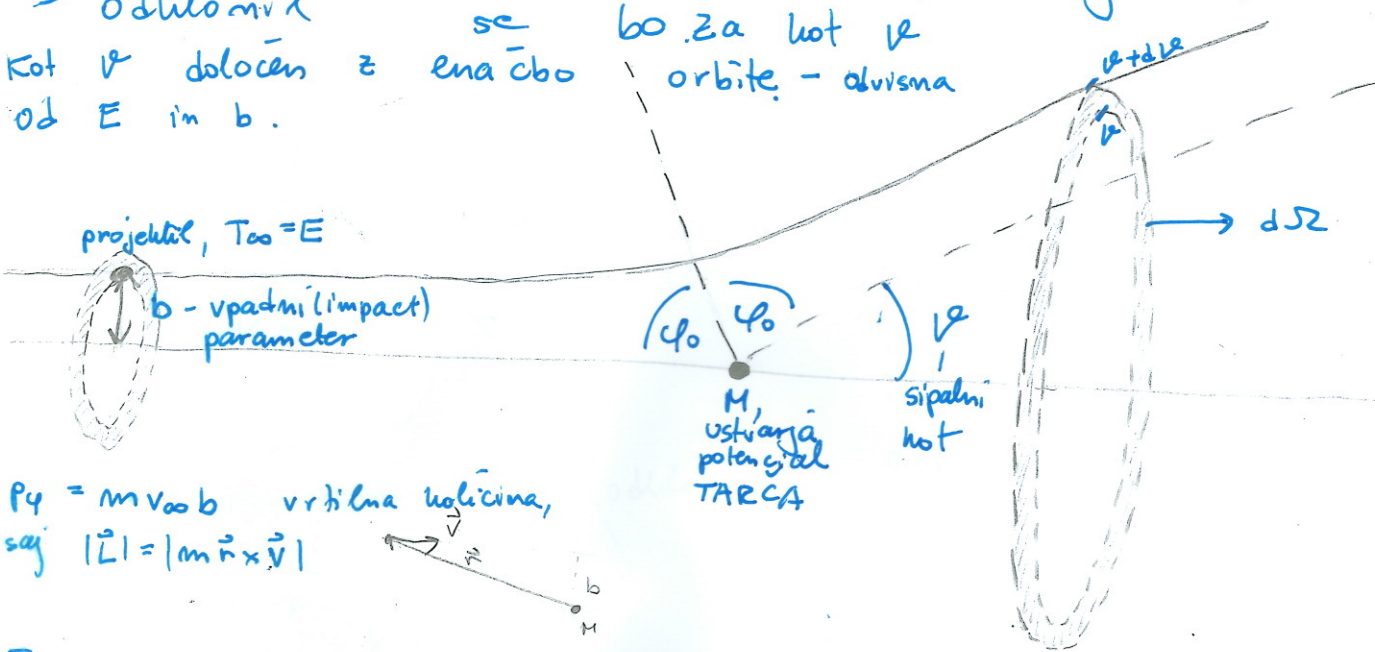 odklonil se bo za kot ϑ
Kot ϑ določen z enačbo orbite - odvisna
od E in b.
ϑ+dϑ
ϑ
dΩ
projektil, T∞ = E
b - vpadni (impact)
parameter
φ₀ φ₀
ϑ
sipalni
kot
M,
ustvarja
potencial
TARČA
pφ = m v∞ b vrtilna količina,
saj |L⃗| = |m r⃗ × v⃗|
v⃗
r⃗
b
M